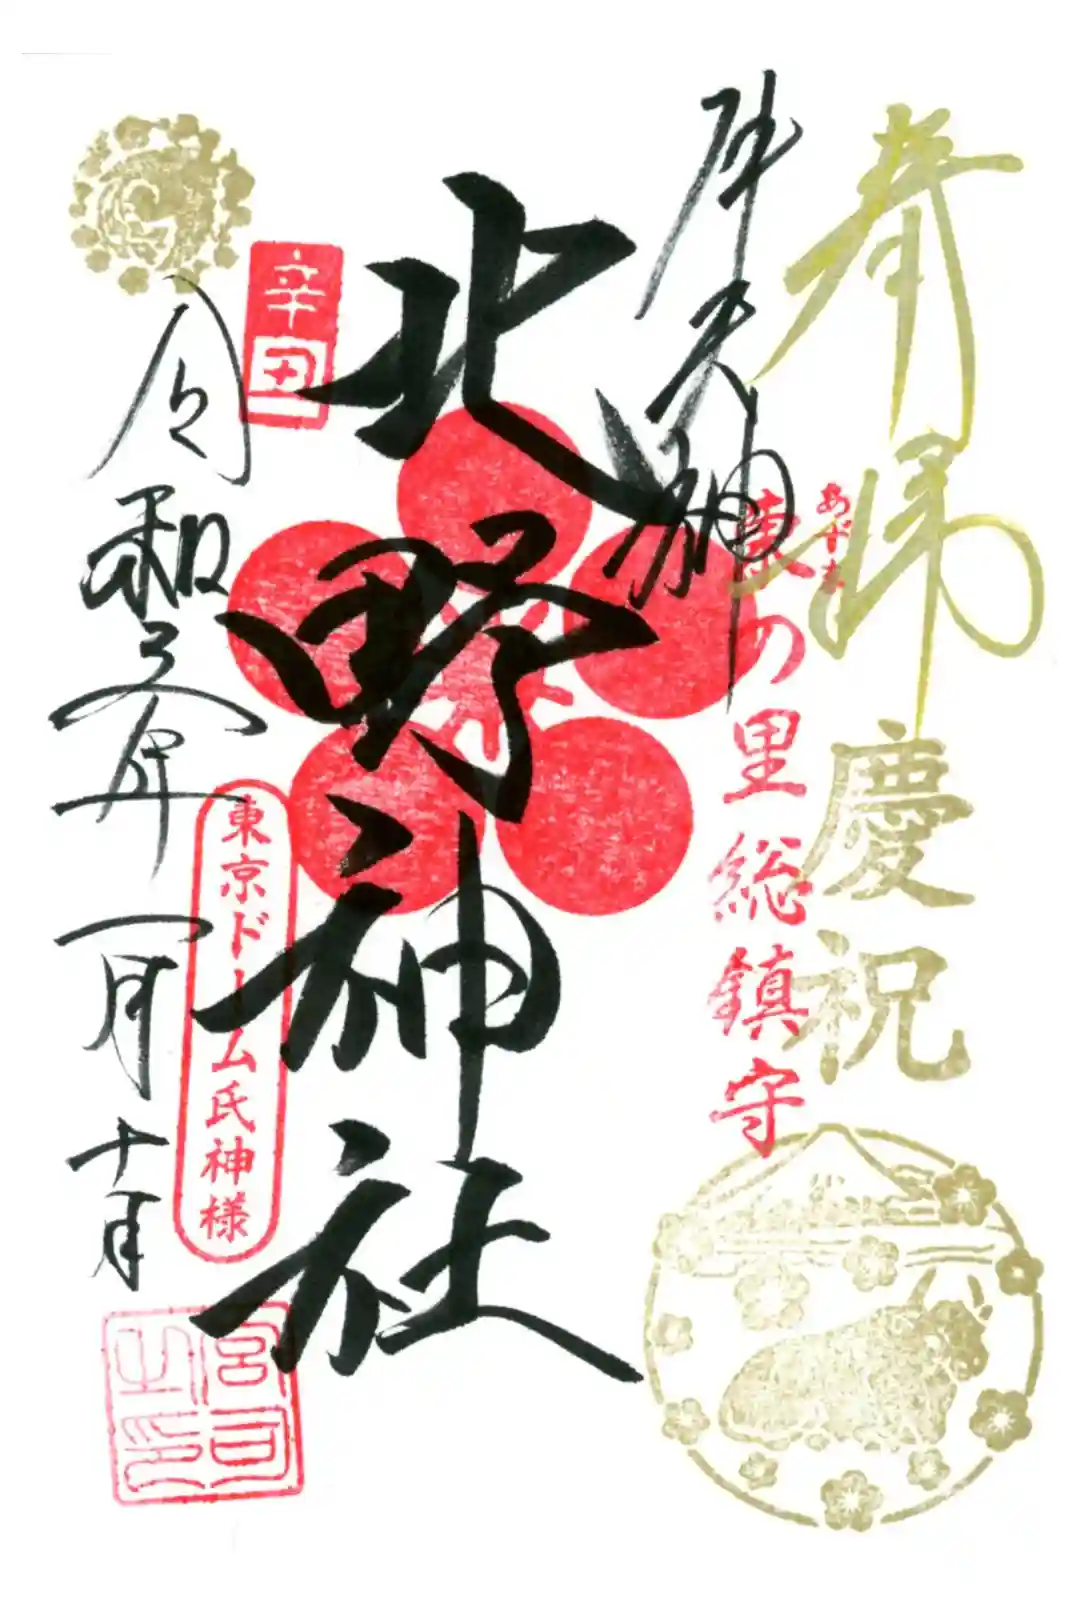 奉拝
慶祝
牛天神
あずま
東の里総鎮守
北野神社
辛丑
令和三年一月十日
東京ドーム氏神様
宮司
之印